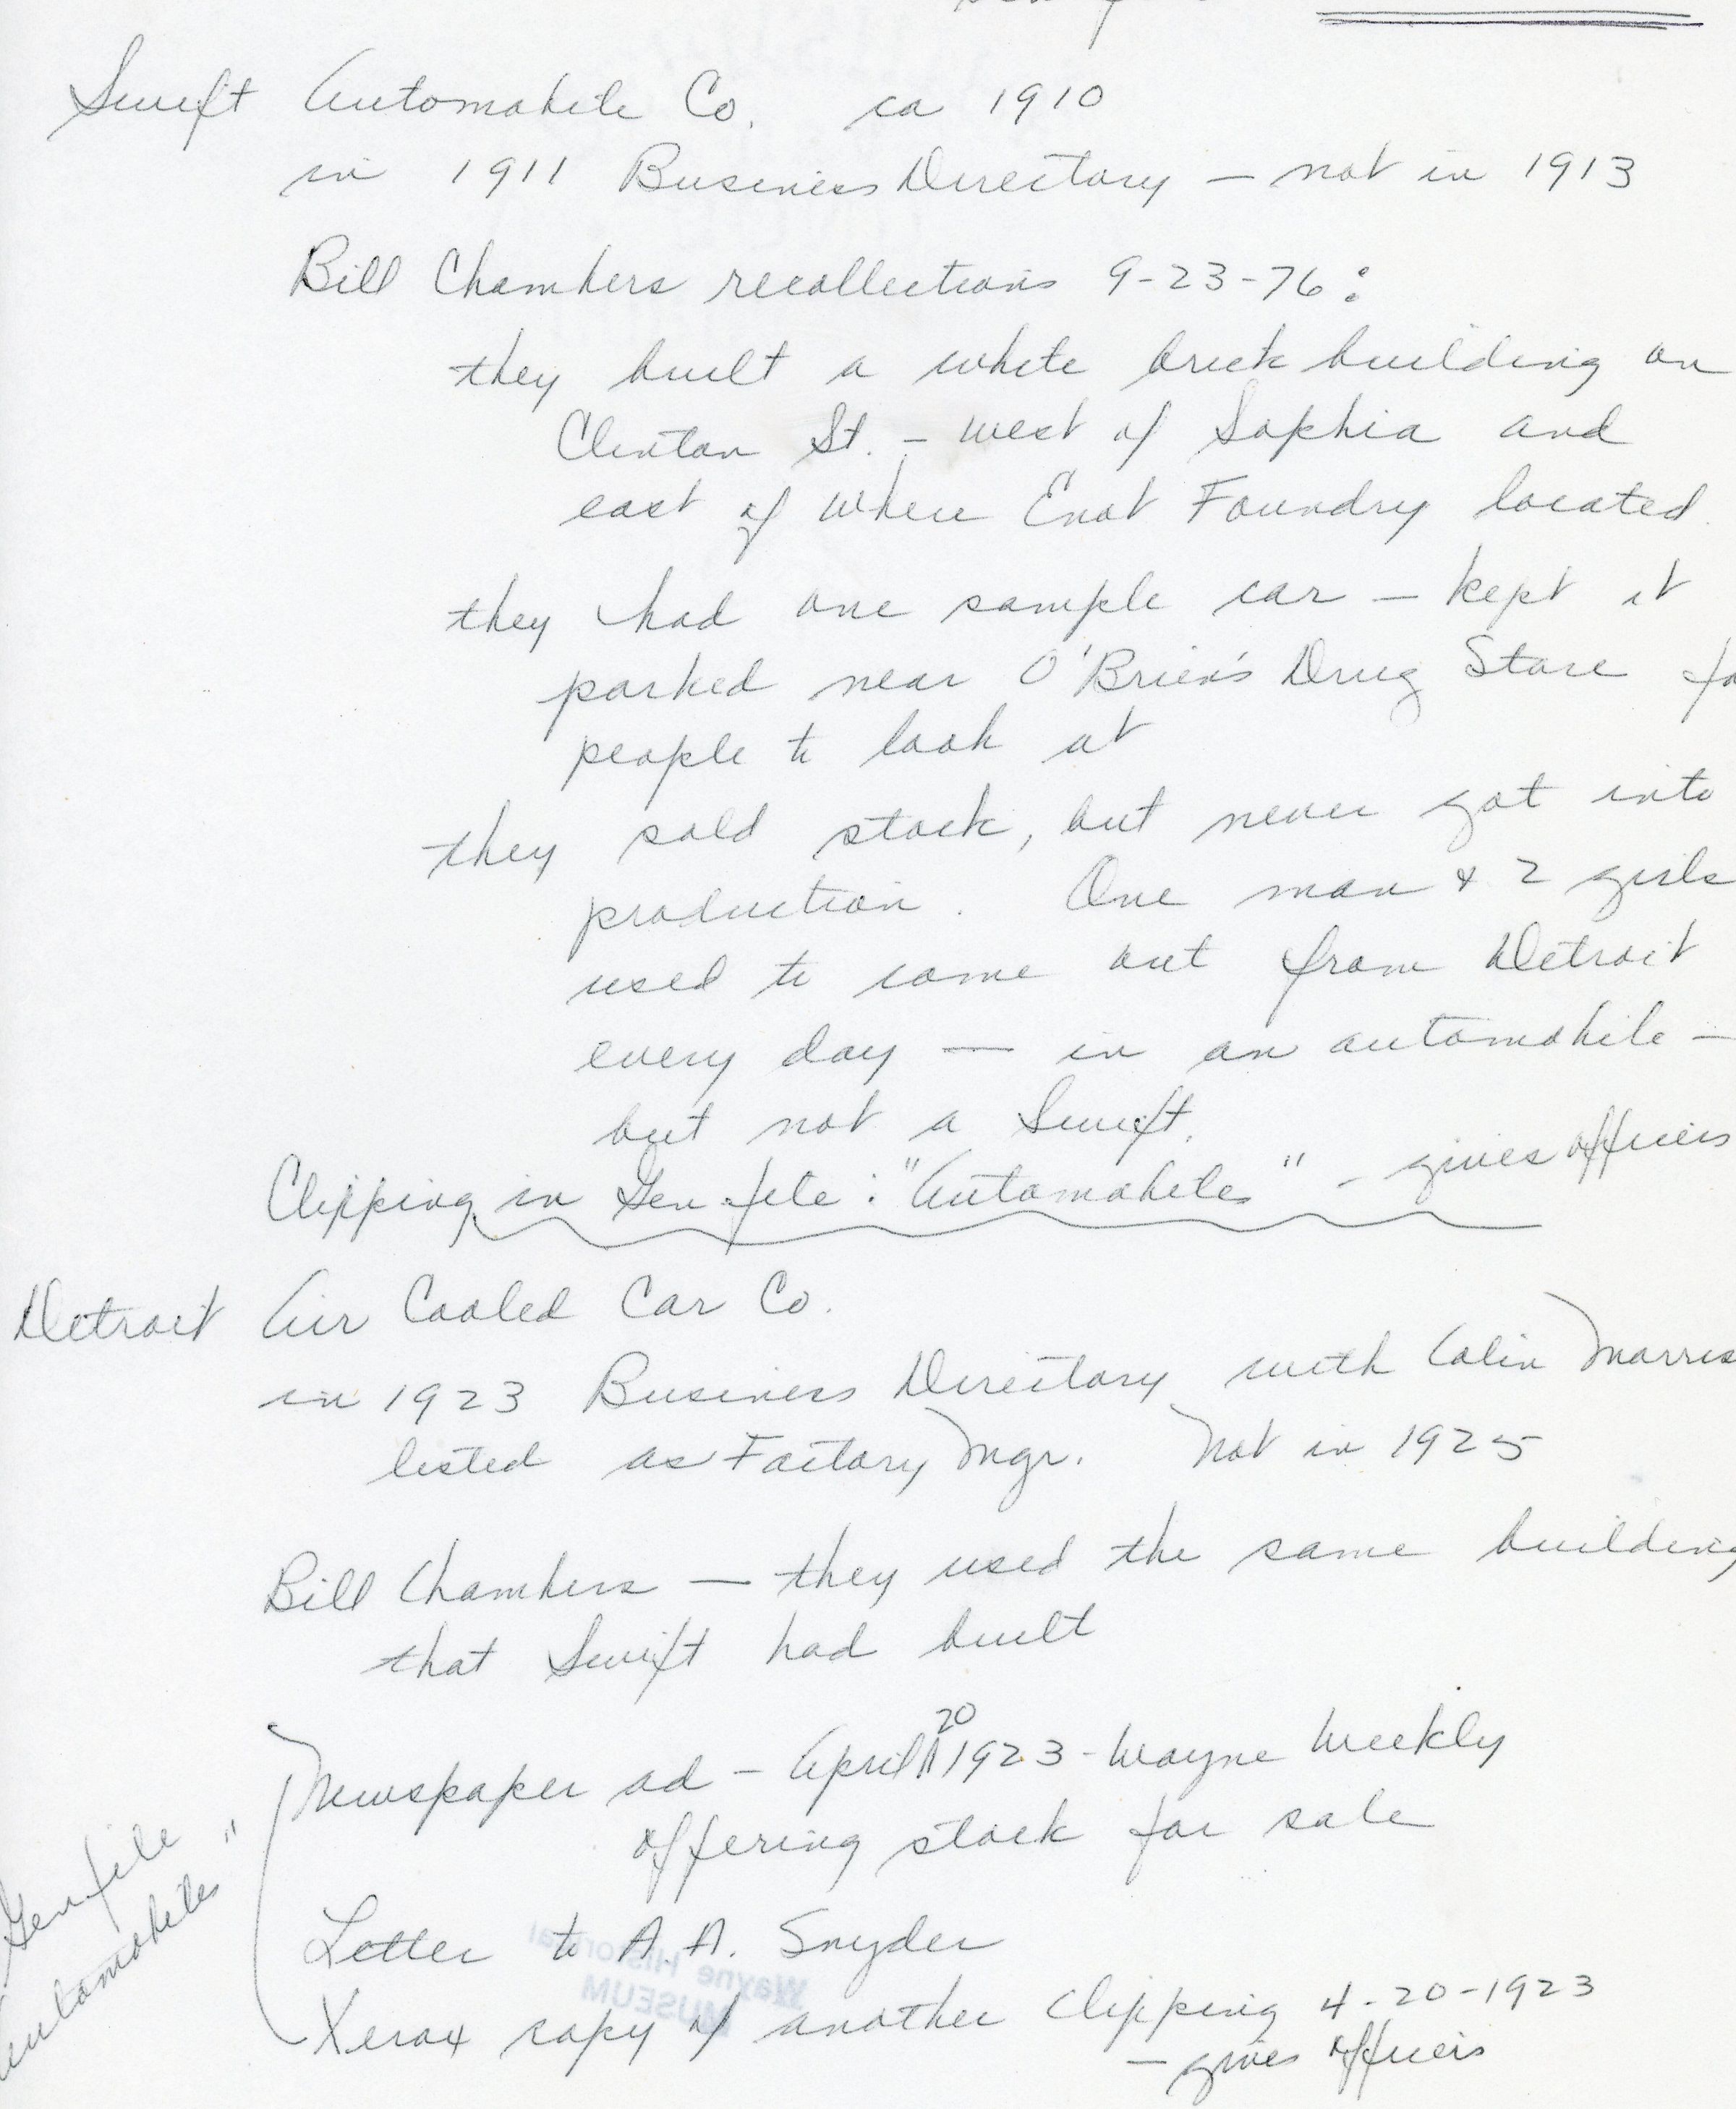 Swift Automobile Co. ca 1910
in 1911 Business Directory — not in 1913
Bill Chambers recollections 9-23-76:
they built a white brick building on
Clinton St. - west of Sophia and
east of where Enot Foundry located.
they had one sample car — kept it
parked near O'Brien's Drug Store
people to look at
they sold stock, but never got into
production. One man & 2 girls
used to come out from Detroit
every day — in an automobile —
but not a Swift.
Clipping in Gen file: "Automobiles" - gives officers
Detroit Air Cooled Car Co.
in 1923 Business Directory with Colin Morris
listed as Factory Mgr. Not in 1925
Bill Chambers — they used the same building
that Swift had built
Newspaper ad - April 20 1923 - Wayne Weekly
offering stock for sale
Letter to A. A. Snyder
Xerox copy of another clipping 4-20-1923
— gives officers
Gen file
Automobiles"
Wayne Historical
MUSEUM